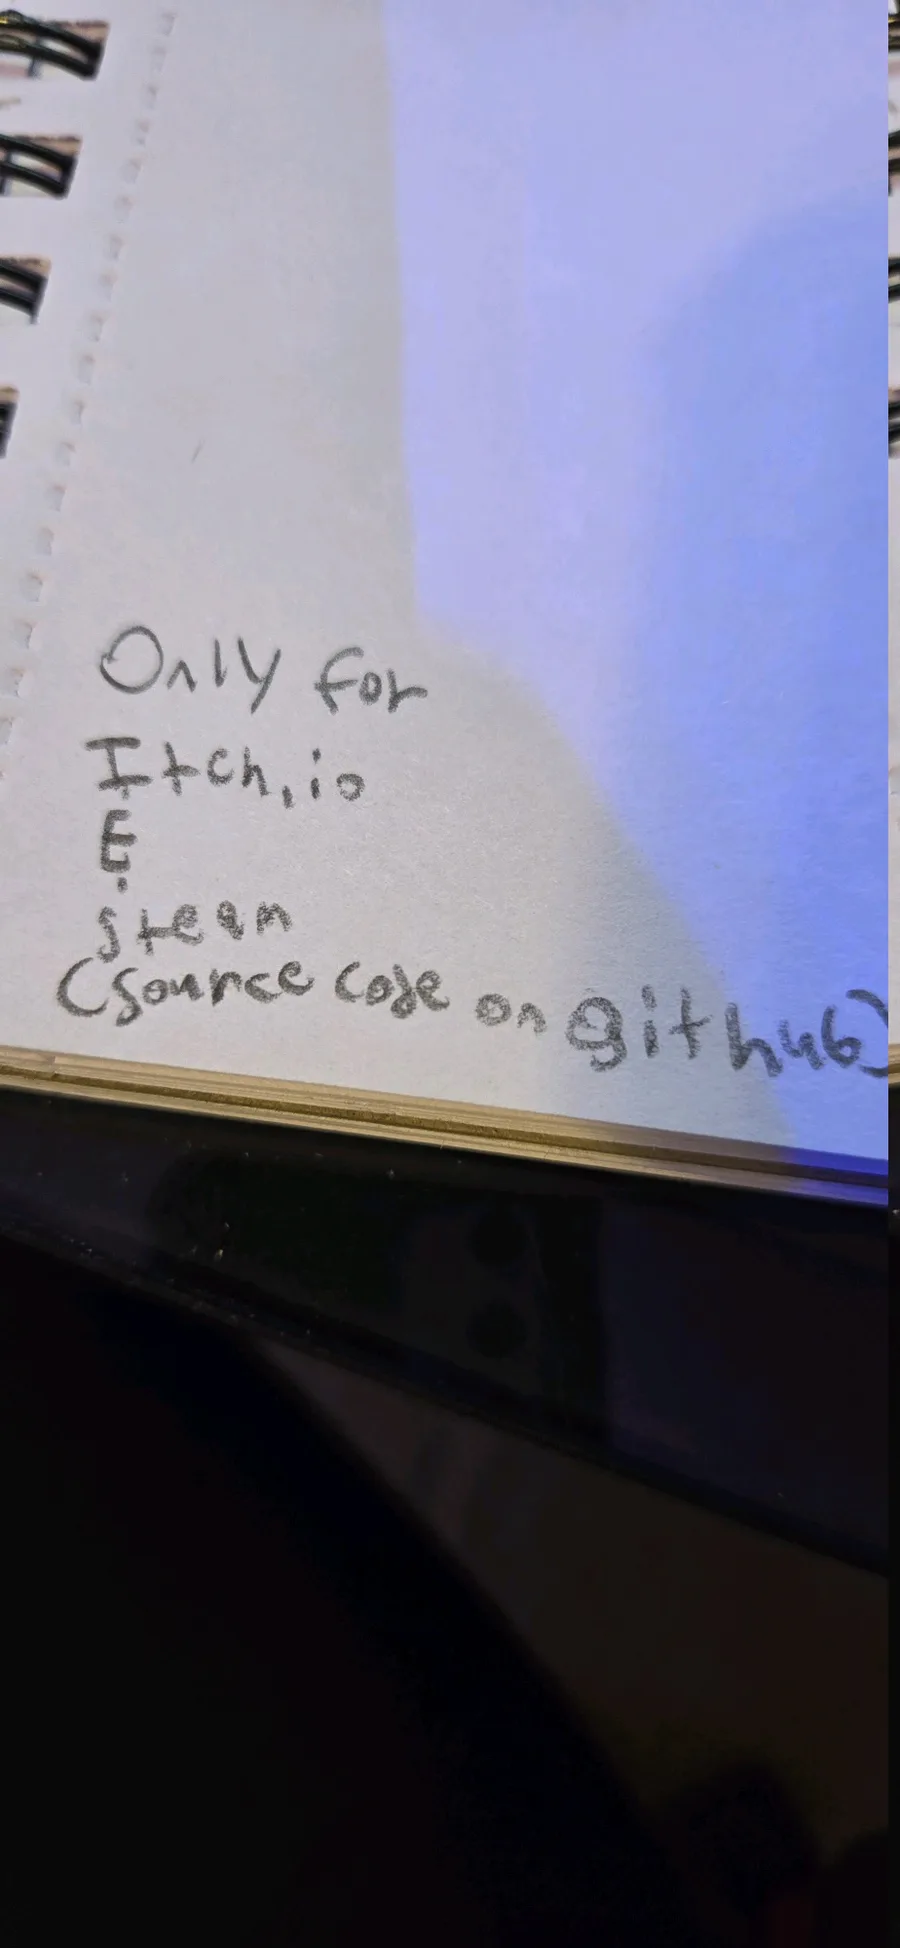 Only for
Itch.io
&
steam
(source code on github)